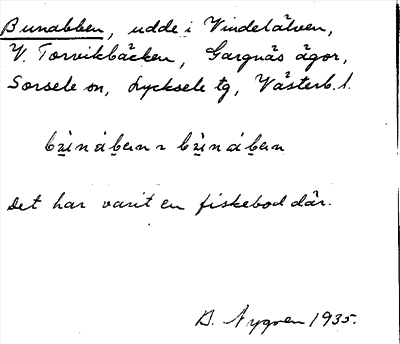 Bunabben, udde i Vindelälven,
V. Torvikbäcken, Gargnäs ägor,
Sorsele sn, Lycksele tg, Västerb. l.
Det har varit en fiskebod där.
B. Nygren 1935.